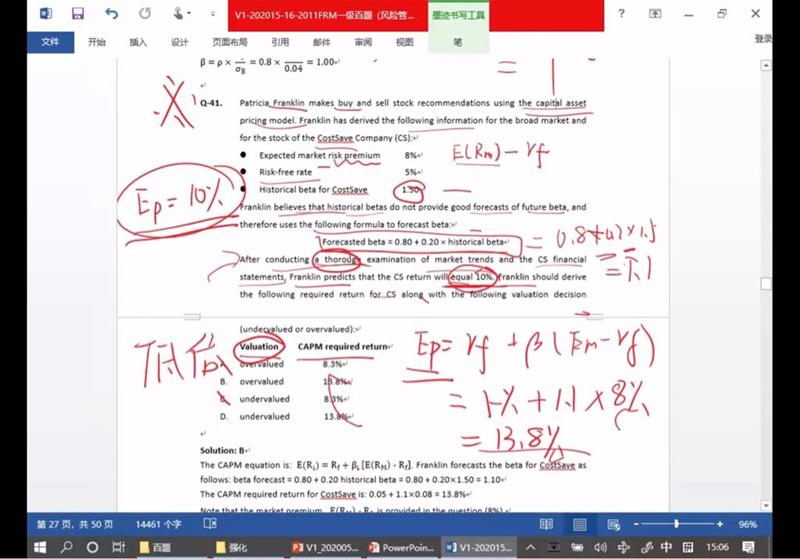 V1-202015-16-2011FRM一级百题（风险管...
墨迹书写工具
文件 开始 插入 设计 页面布局 引用 邮件 审阅 视图 笔 登录
Q-41. Patricia Franklin makes buy and sell stock recommendations using the capital asset
pricing model. Franklin has derived the following information for the broad market and
for the stock of the CostSave Company (CS):
● Expected market risk premium 8% E(Rm) - rf
● Risk-free rate 5%
● Historical beta for CostSave 1.50
Ep = 10%
Franklin believes that historical betas do not provide good forecasts of future beta, and
therefore uses the following formula to forecast beta:
Forecasted beta = 0.80 + 0.20 × historical beta = 0.8+0.2×1.5
= 1.1
After conducting a thorough examination of market trends and the CS financial
statements, Franklin predicts that the CS return will equal 10%. Franklin should derive
the following required return for CS along with the following valuation decision
(undervalued or overvalued):
Valuation CAPM required return
overvalued 8.3%
B. overvalued 13.8%
C. undervalued 8.3%
D. undervalued 13.8%
低估
Ep = rf + β(Em - rf)
+ 1.1 × 8%
= 13.8%
Solution: B
The CAPM equation is: E(Rᵢ) = Rf + βᵢ [E(RM) - Rf]. Franklin forecasts the beta for CostSave as
follows: beta forecast = 0.80 + 0.20 historical beta = 0.80 + 0.20×1.50 = 1.10
The CAPM required return for CostSave is: 0.05 + 1.1×0.08 = 13.8%
Note that the market premium, E(RM) - Rf, is provided in the question (8%)
第 27 页，共 50 页 14461 个字 96%
百题 强化 V1_202005... PowerPoin... V1-202015... 中 拼 15:06